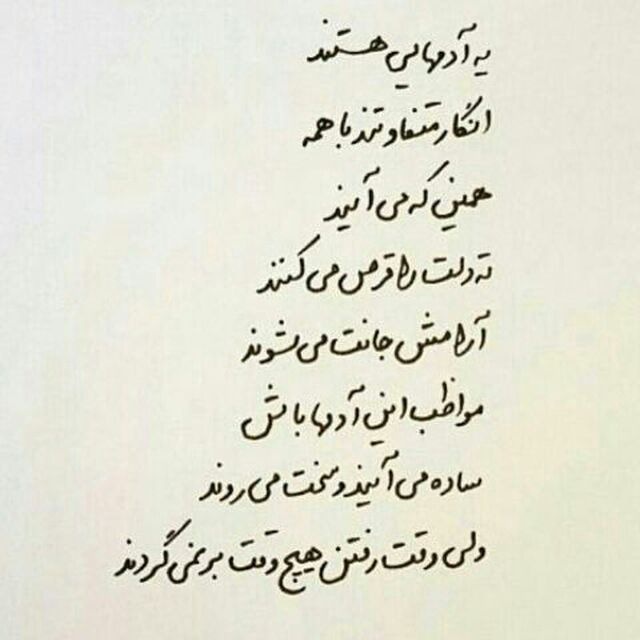 یه آدمهایی هستند
انگار متفاوتند با همه
همین که می آیند
ته دلت را قرص می کنند
آرامش جانت می شوند
مواظب این آدمها باش
ساده می آیند و سخت می روند
ولی وقت رفتن هیچ وقت بر نمی گردند